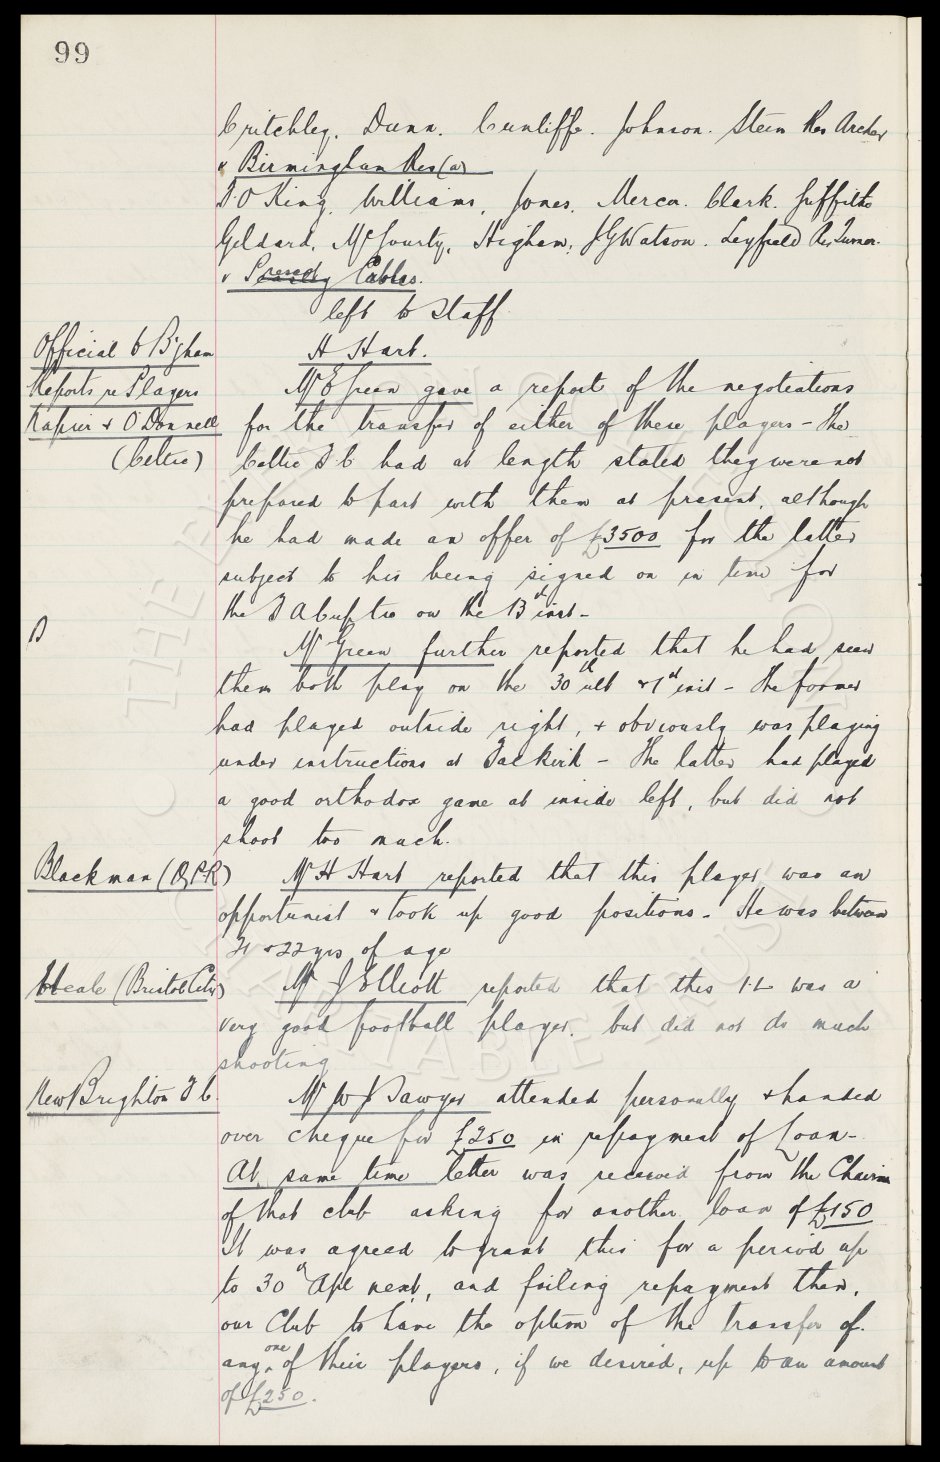 99
Critchley. Dunn. Cunliffe. Johnson. Stein Res Archer
v Birmingham Res (a)
T.O King, Williams, Jones, Mercer. Clark. Griffiths
Geldard, McGourty, Higham, J G Watson. Leyfield Res Turner.
v Prescot Cables.
left to Staff
Official to B'gham
H Hart.
Reports re Players
Mr E Green gave a report of the negotiations
Napier & O'Donnell
for the transfer of either of these players - The
(Celtic)
Celtic F C had at length stated they were not
prepared to part with them at present, although
he had made an offer of £3500 for the latter
subject to his being signed on in time for
the F A Cup tie on the 13th inst -
Mr Green further reported that he had seen
them both play on the 30th ult & 1st inst - The former
had played outside right, & obviously was playing
under instructions at Falkirk - The latter had played
a good orthodox game at inside left, but did not
shoot too much.
Blackman (Q.P.R)
Mr H Hart reported that this player was an
opportunist & took up good positions - He was between
21 & 22 yrs of age
Heale (Bristol City)
Mr J Elliott reported that this I.L was a
very good football player, but did not do much
shooting
New Brighton F C.
Mr W J Sawyer attended personally & handed
over cheque for £250 in repayment of Loan -
At same time letter was received from the Chairman
of that club asking for another loan of £150
It was agreed to grant this for a period up
to 30th Apl next, and failing repayment then,
our Club to have the option of the transfer of.
any one of their players, if we desired, up to an amount
of £250.